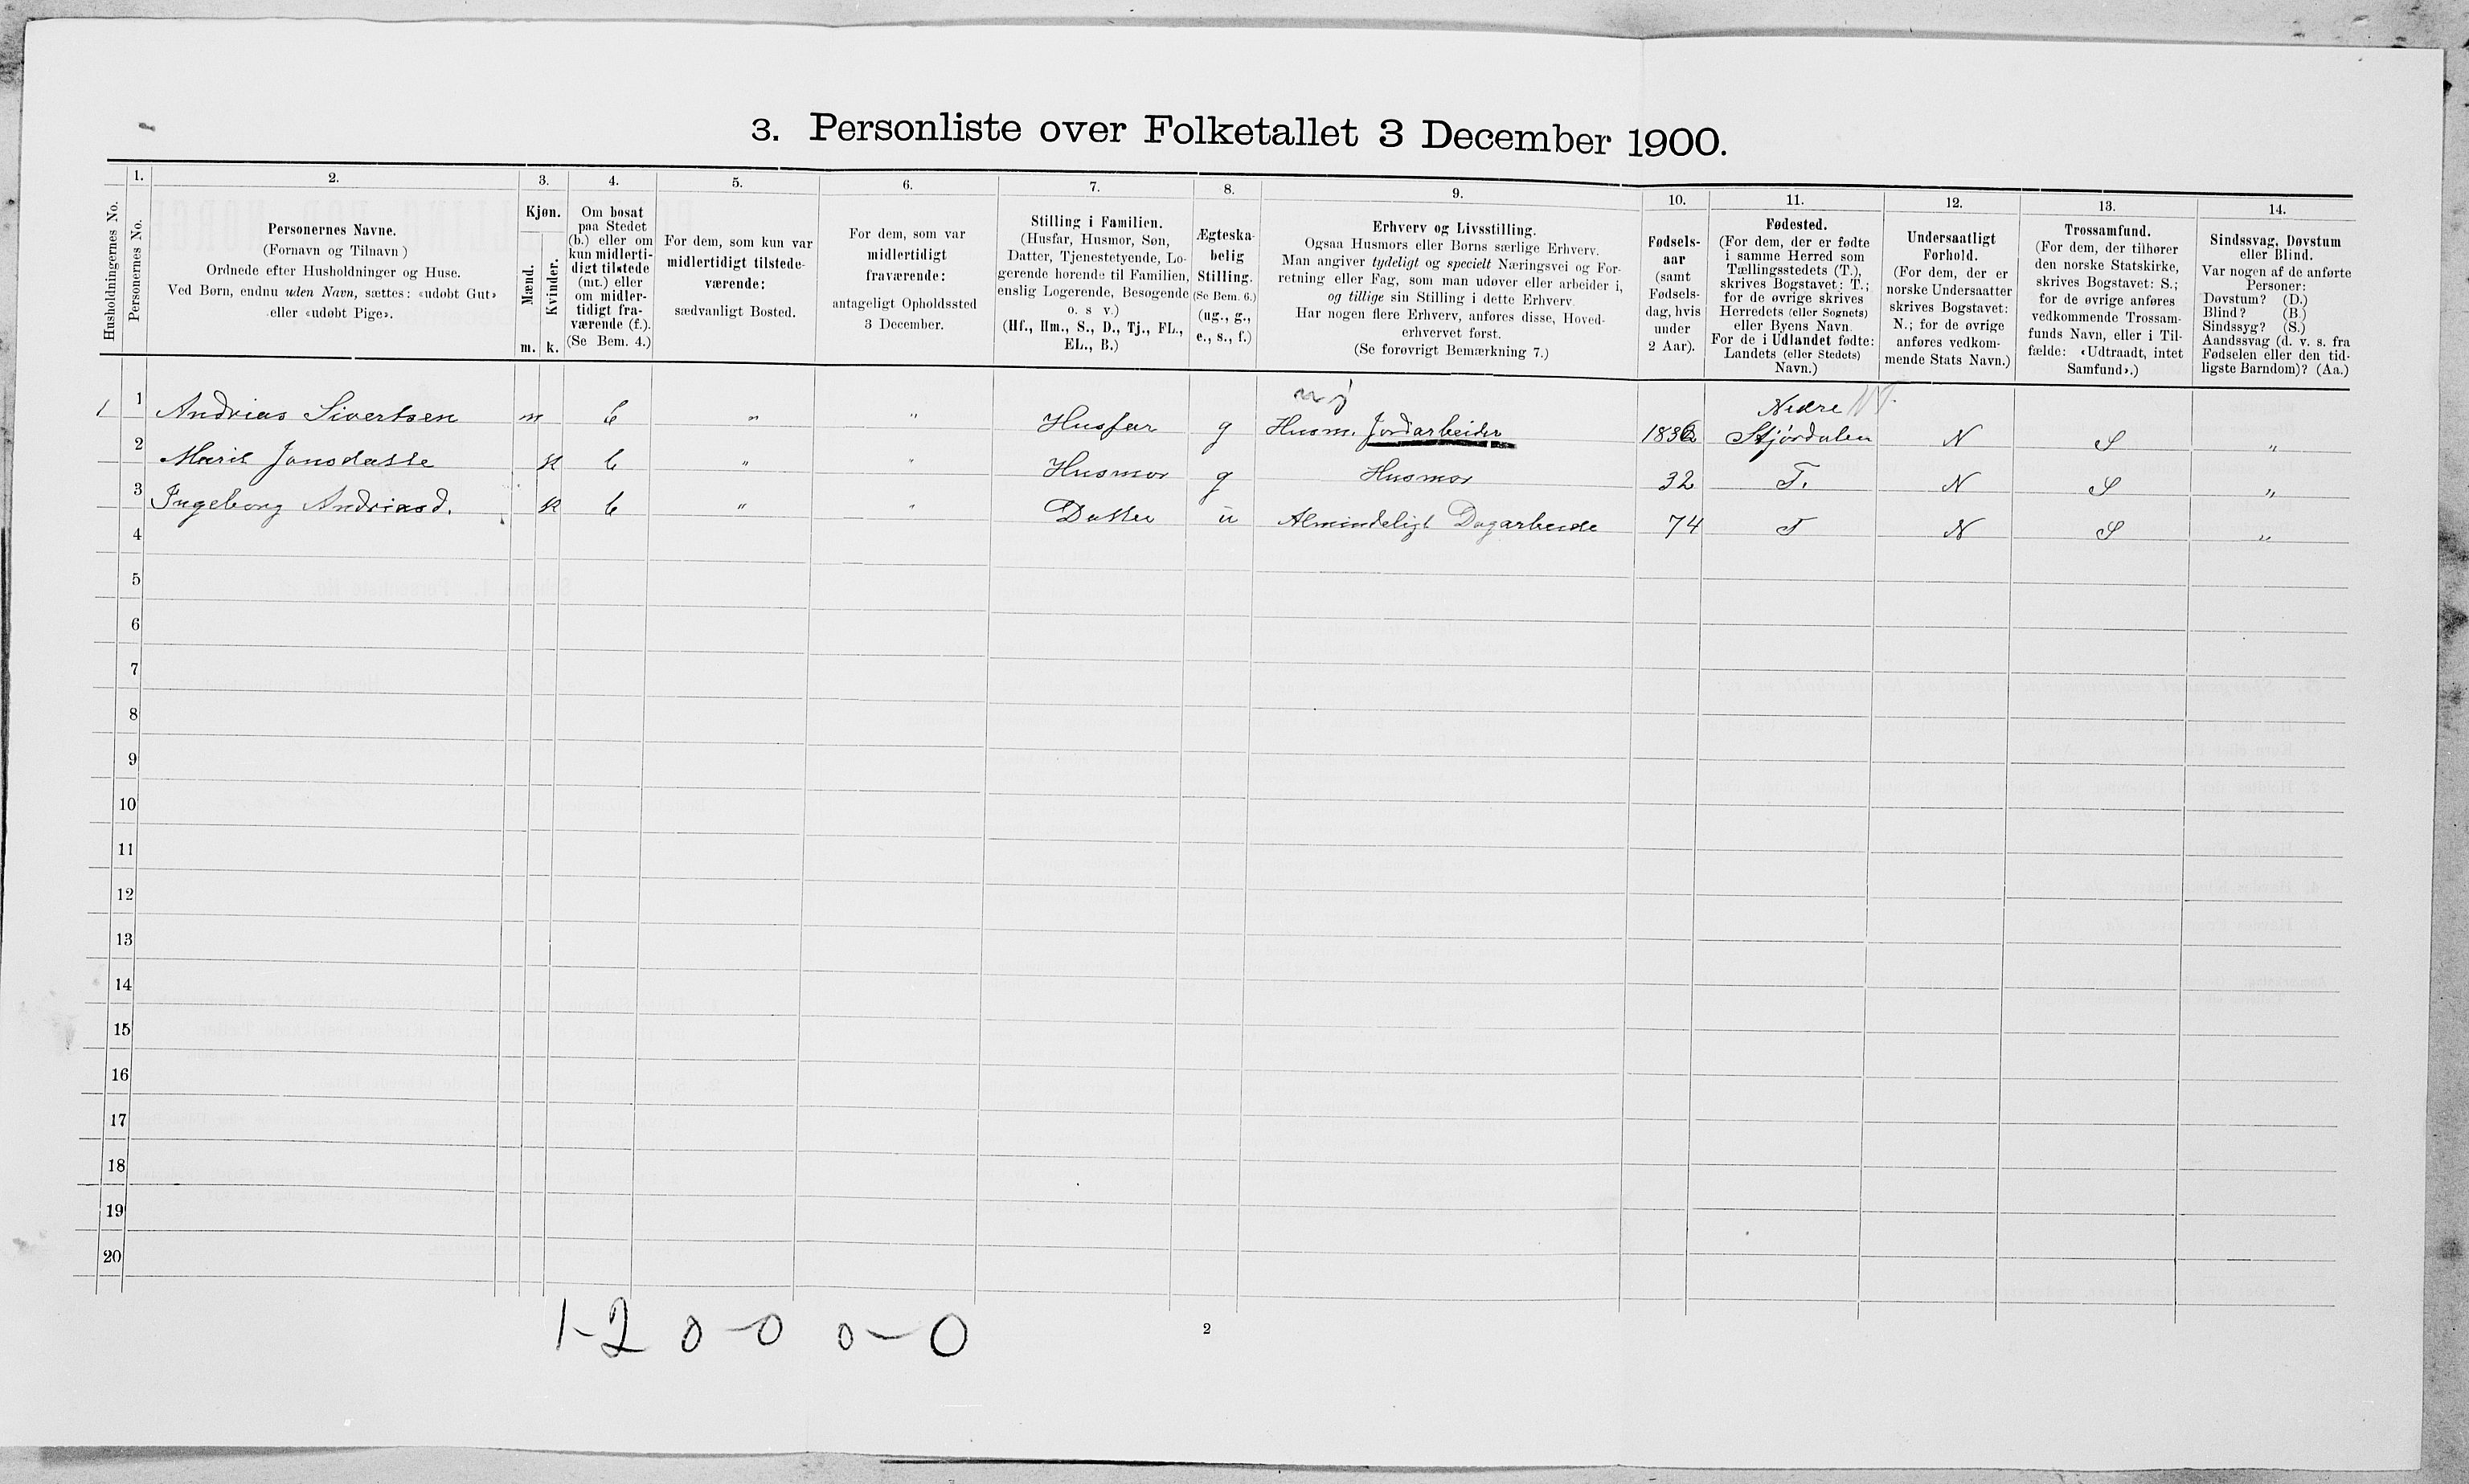 3. Personliste over Folketallet 3 December 1900.
Husholdningernes No.
1. 2. 3. 4. 5. 6. 7. 8. 9. 10. 11. 12. 13. 14.
Personernes No.
Personernes Navne.
(Fornavn og Tilnavn)
Ordnede efter Husholdninger og Huse.
Ved Børn, endnu uden Navn, sættes: «udøbt Gut»
eller «udøbt Pige».
Kjøn.
Mænd.
Kvinder.
m. k.
Om bosat
paa Stedet
(b.) eller om
kun midlerti-
digt tilstede
(mt.) eller
om midler-
tidigt fra-
værende (f.).
(Se Bem. 4.)
For dem, som kun var
midlertidigt tilstede-
værende:
sædvanligt Bosted.
For dem, som var
midlertidigt
fraværende:
antageligt Opholdssted
3 December.
Stilling i Familien.
(Husfar, Husmor, Søn,
Datter, Tjenestetyende, Lo-
gerende hørende til Familien,
enslig Logerende, Besøgende
o. s v.)
(Hf., Hm., S., D., Tj., FL.,
EL., B.)
Ægteska-
belig
Stilling.
(Se Bem. 6.)
(ug., g.,
e., s., f.)
Erhverv og Livsstilling.
Ogsaa Husmors eller Børns særlige Erhverv.
Man angiver tydeligt og specielt Næringsvei og For-
retning eller Fag, som man udøver eller arbeider i,
og tillige sin Stilling i dette Erhverv.
Har nogen flere Erhverv, anføres disse, Hoved-
erhvervet først.
(Se forøvrigt Bemærkning 7.)
Fødsels-
aar
(samt
Fødsels-
dag, hvis
under
2 Aar).
Fødested.
(For dem, der er fødte
i samme Herred som
Tællingsstedets (T.),
skrives Bogstavet: T.;
for de øvrige skrives
Herredets (eller Sognets)
eller Byens Navn.
For de i Udlandet fødte:
Landets (eller Stedets)
Navn.)
Undersaatligt
Forhold.
(For dem, der er
norske Undersaatter
skrives Bogstavet:
N.; for de øvrige
anføres vedkom-
mende Stats Navn.)
Trossamfund.
(For dem, der tilhører
den norske Statskirke,
skrives Bogstavet: S.;
for de øvrige anføres
vedkommende Trossam-
funds Navn, eller i Til-
fælde: «Udtraadt, intet
Samfund».)
Sindssvag, Døvstum
eller Blind.
Var nogen af de anførte
Personer:
Døvstum? (D.)
Blind? (B.)
Sindssyg? (S.)
Aandssvag (d. v. s. fra
Fødselen eller den tid-
ligste Barndom)? (Aa.)
1 1 Andrias Sivertsen m b " " Husfar g Husm. Jordarbeider Nedre Stjørdalen N S "
2 Marit Jonsdatte k b " " Husmor g Husmor 32 T. N S "
3 Ingeborg Andriasd. k b " " Datter u Almindeligt Dagarbeide 74 T N S "
4
5
6
7
8
9
10
11
12
13
14
15
16
17
18
19
20
1-2 0-0 0-0
2